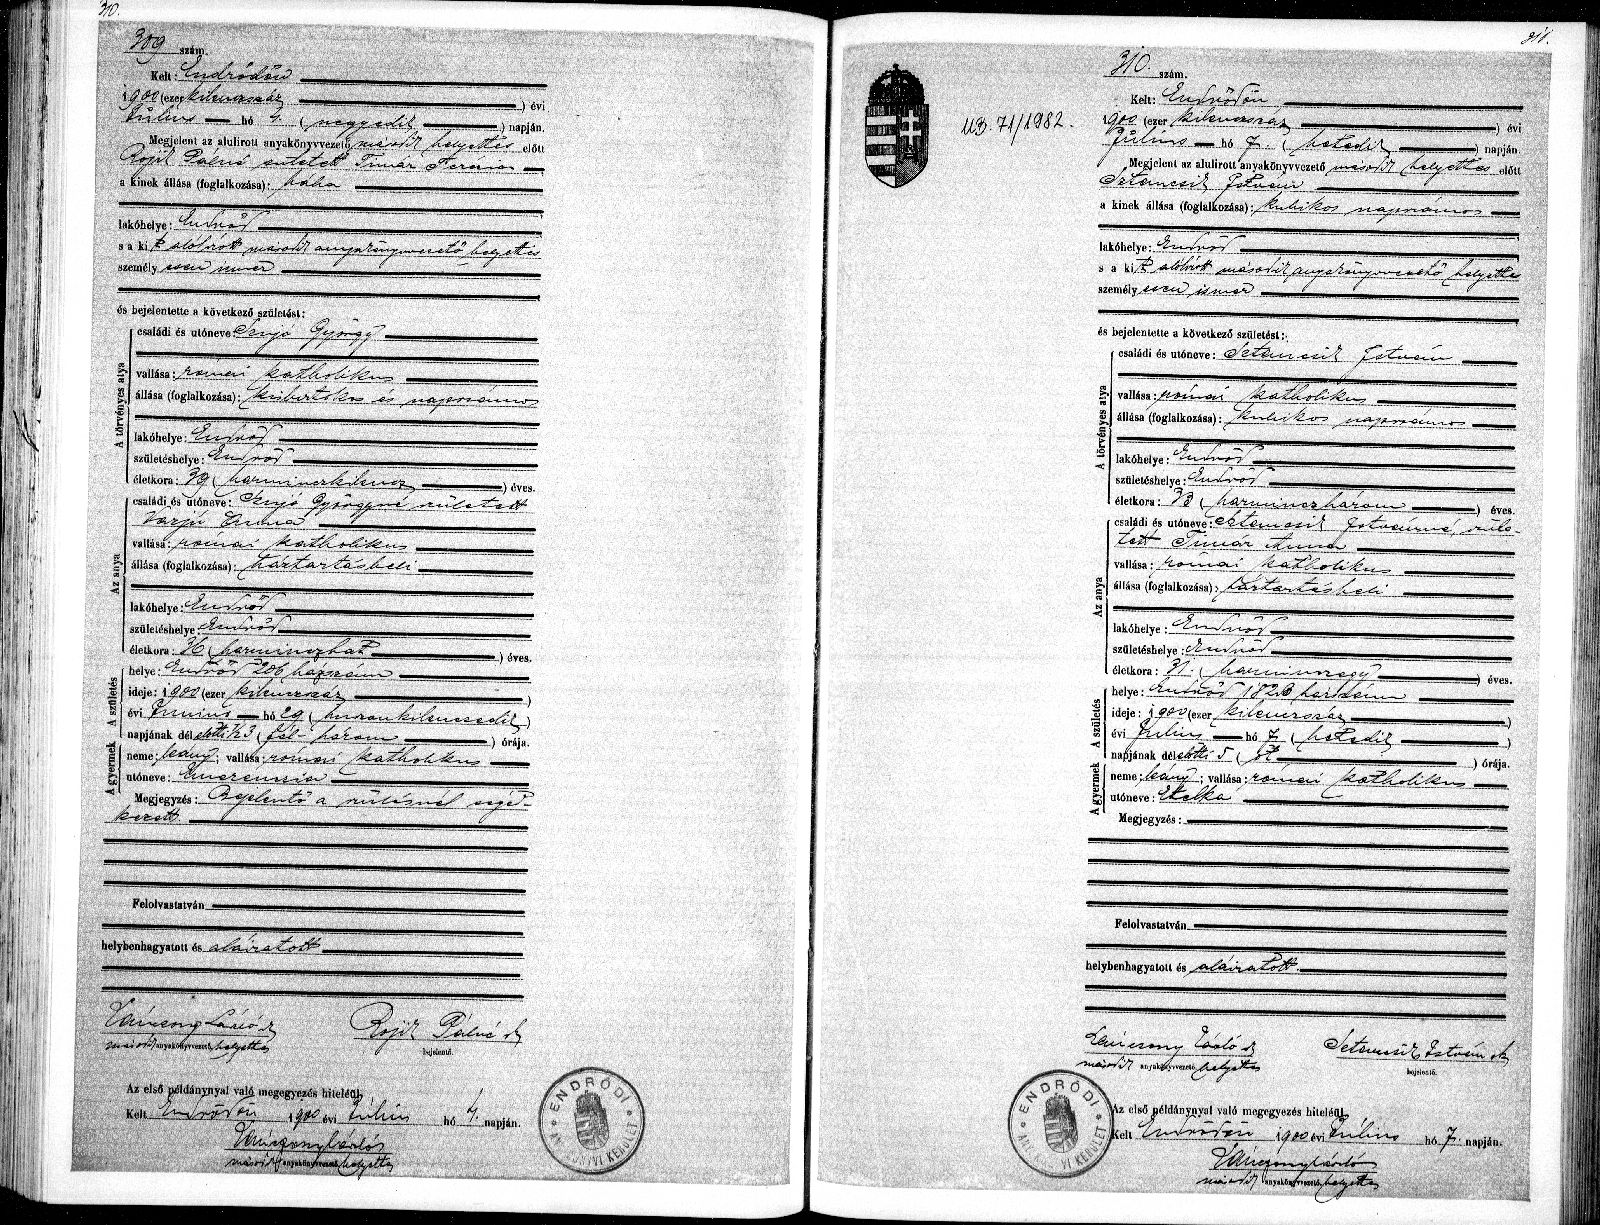 310.
309 szám.
Kelt: Endrődön
1900 (ezer kilenczszáz ) évi
Július hó 4. ( negyedik ) napján.
Megjelent az alulirott anyakönyvvezető második helyettes előtt
Rojik Pálné született Timár Terézia
a kinek állása (foglalkozása): bába
lakóhelye: Endrőd
s a kit alólírott második anyakönyvvezető helyettes
személyesen ismer
és bejelentette a következő születést:
A törvényes atya
családi és utóneve: Szujó György
vallása: római katholikus
állása (foglalkozása): kisbirtokos és napszámos
lakóhelye: Endrőd
születéshelye: Endrőd
életkora: 39 ( harminczkilencz ) éves.
Az anya
családi és utóneve: Szujó Györgyné született
Varjú Anna
vallása: római katholikus
állása (foglalkozása): háztartásbeli
lakóhelye: Endrőd
születéshelye: Endrőd
életkora: 36 ( harminczhat ) éves.
A születés
helye: Endrőd 206 házszám
ideje: 1900 (ezer kilenczszáz )
évi Június hó 29 ( huszonkilenczedik )
napjának délelőtti ½3 ( fél három ) órája.
A gyermek
neme: leány; vallása: római katholikus
utóneve: Emerenczia
Megjegyzés: Bejelentő a szülésnél segéd-
kezett.
Felolvastatván
helybenhagyatott és aláiratott
László
második anyakönyvvezető helyettes
Rojik Pálné
bejelentő.
Az első példánynyal való megegyezés hiteléül.
Kelt Endrődön 1900 évi Július hó 4. napján.
második anyakönyvvezető helyettes
ENDRŐDI ANYAKÖNYVI KERÜLET
311.
UB. 71/1982.
310. szám.
Kelt: Endrődön
1900 (ezer kilenczszáz ) évi
Július hó 7. ( hetedik ) napján.
Megjelent az alulirott anyakönyvvezető második helyettes előtt
Sztancsik István
a kinek állása (foglalkozása): kubikos napszámos
lakóhelye: Endrőd
s a kit alólírott második anyakönyvvezető helyettes
személyesen ismer
és bejelentette a következő születést:
A törvényes atya
családi és utóneve: Sztancsik István
vallása: római katholikus
állása (foglalkozása): kubikos napszámos
lakóhelye: Endrőd
születéshelye: Endrőd
életkora: 33 ( harminczhárom ) éves.
Az anya
családi és utóneve: Sztancsik Istvánné, szüle-
tett Timár Anna
vallása: római katholikus
állása (foglalkozása): háztartásbeli
lakóhelye: Endrőd
születéshelye: Endrőd
életkora: 31. ( harminczegy ) éves.
A születés
helye: Endrőd házszám
ideje: 1900 (ezer kilenczszáz )
évi Július hó 7. ( hetedik )
napjának délelőtti 5 ( öt ) órája.
A gyermek
neme: leány; vallása: római katholikus
utóneve: Etelka
Megjegyzés:
Felolvastatván
helybenhagyatott és aláiratott.
László
második anyakönyvvezető helyettes
Sztancsik István
bejelentő.
Az első példánynyal való megegyezés hiteléül.
Kelt Endrődön 1900 évi Július hó 7. napján.
második anyakönyvvezető helyettes
ENDRŐDI ANYAKÖNYVI KERÜLET